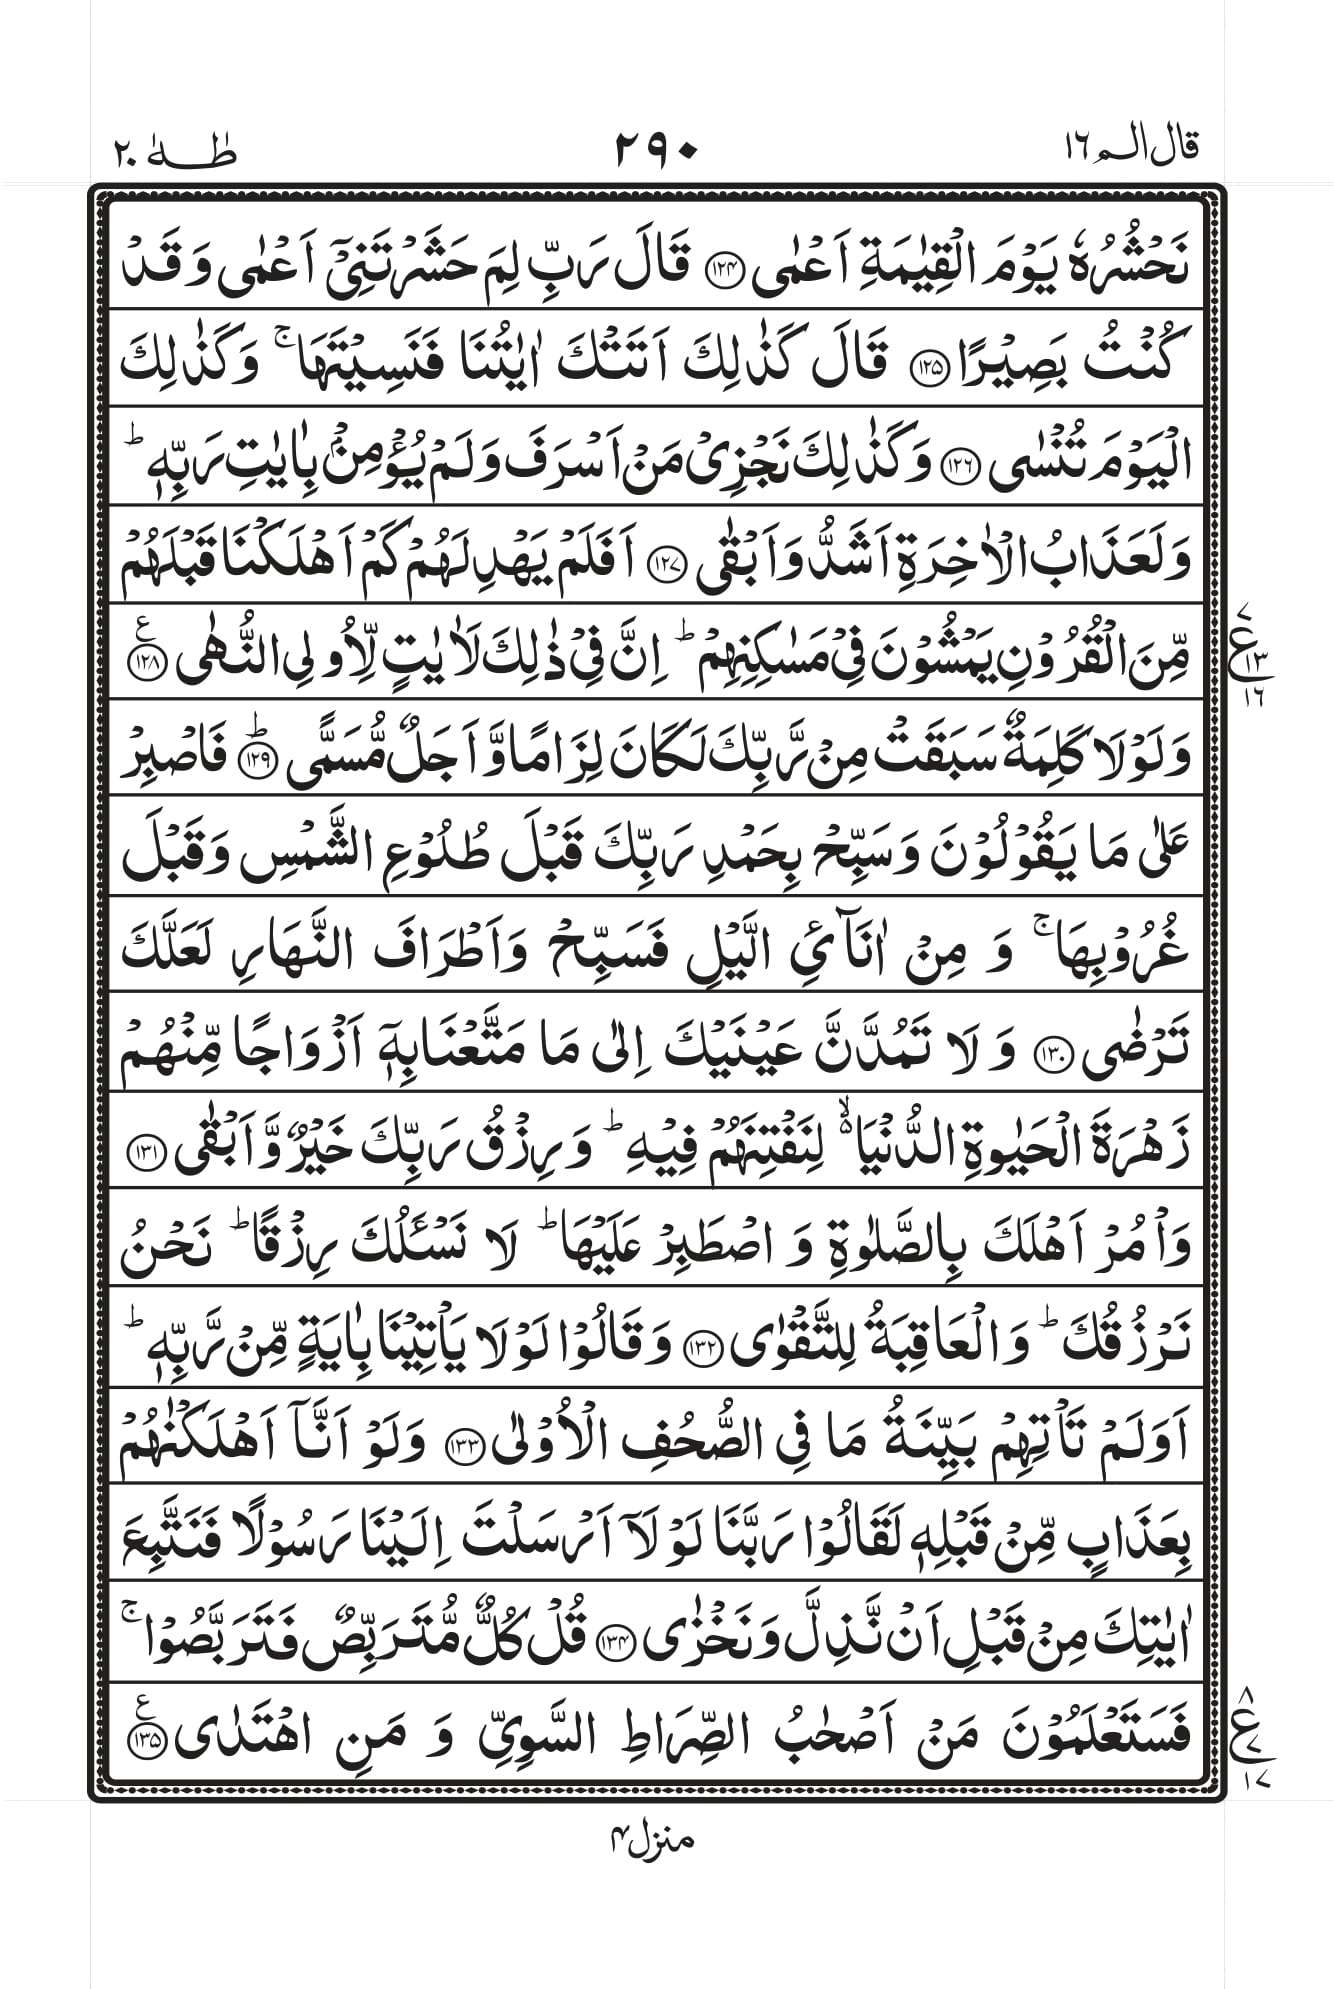 قال الم ١٦
٢٩٠
طٰهٰ ٢٠
نَحْشُرُهٗ يَوْمَ الْقِيٰمَةِ اَعْمٰى ﴿۱۲۴﴾ قَالَ رَبِّ لِمَ حَشَرْتَنِيْۤ اَعْمٰى وَقَدْ
كُنْتُ بَصِيْرًا ﴿۱۲۵﴾ قَالَ كَذٰلِكَ اَتَتْكَ اٰيٰتُنَا فَنَسِيْتَهَا ۚ وَكَذٰلِكَ
الْيَوْمَ تُنْسٰى ﴿۱۲۶﴾ وَكَذٰلِكَ نَجْزِيْ مَنْ اَسْرَفَ وَلَمْ يُؤْمِنْۢ بِاٰيٰتِ رَبِّهٖ ؕ
وَلَعَذَابُ الْاٰخِرَةِ اَشَدُّ وَاَبْقٰى ﴿۱۲۷﴾ اَفَلَمْ يَهْدِ لَهُمْ كَمْ اَهْلَكْنَا قَبْلَهُمْ
مِّنَ الْقُرُوْنِ يَمْشُوْنَ فِيْ مَسٰكِنِهِمْ ؕ اِنَّ فِيْ ذٰلِكَ لَاٰيٰتٍ لِّاُولِي النُّهٰى ﴿۱۲۸﴾ ع
٧ ع ١٣ ١٦
وَلَوْلَا كَلِمَةٌ سَبَقَتْ مِنْ رَّبِّكَ لَكَانَ لِزَامًا وَّاَجَلٌ مُّسَمًّى ؕ﴿۱۲۹﴾ فَاصْبِرْ
عَلٰى مَا يَقُوْلُوْنَ وَسَبِّحْ بِحَمْدِ رَبِّكَ قَبْلَ طُلُوْعِ الشَّمْسِ وَقَبْلَ
غُرُوْبِهَا ۚ وَ مِنْ اٰنَآئِ الَّيْلِ فَسَبِّحْ وَاَطْرَافَ النَّهَارِ لَعَلَّكَ
تَرْضٰى ﴿۱۳۰﴾ وَ لَا تَمُدَّنَّ عَيْنَيْكَ اِلٰى مَا مَتَّعْنَا بِهٖۤ اَزْوَاجًا مِّنْهُمْ
زَهْرَةَ الْحَيٰوةِ الدُّنْيَا ۙ۬ لِنَفْتِنَهُمْ فِيْهِ ؕ وَ رِزْقُ رَبِّكَ خَيْرٌ وَّاَبْقٰى ﴿۱۳۱﴾
وَاْمُرْ اَهْلَكَ بِالصَّلٰوةِ وَ اصْطَبِرْ عَلَيْهَا ؕ لَا نَسْـَٔلُكَ رِزْقًا ؕ نَحْنُ
نَرْزُقُكَ ؕ وَالْعَاقِبَةُ لِلتَّقْوٰى ﴿۱۳۲﴾ وَقَالُوْا لَوْلَا يَاْتِيْنَا بِاٰيَةٍ مِّنْ رَّبِّهٖ ؕ
اَوَلَمْ تَاْتِهِمْ بَيِّنَةُ مَا فِي الصُّحُفِ الْاُوْلٰى ﴿۱۳۳﴾ وَلَوْ اَنَّاۤ اَهْلَكْنٰهُمْ
بِعَذَابٍ مِّنْ قَبْلِهٖ لَقَالُوْا رَبَّنَا لَوْ لَاۤ اَرْسَلْتَ اِلَيْنَا رَسُوْلًا فَنَتَّبِعَ
اٰيٰتِكَ مِنْ قَبْلِ اَنْ نَّذِلَّ وَنَخْزٰى ﴿۱۳۴﴾ قُلْ كُلٌّ مُّتَرَبِّصٌ فَتَرَبَّصُوْا ۚ
فَسَتَعْلَمُوْنَ مَنْ اَصْحٰبُ الصِّرَاطِ السَّوِيِّ وَ مَنِ اهْتَدٰى ﴿۱۳۵﴾ ع
٨ ع ٧ ١٧
منزل ۴